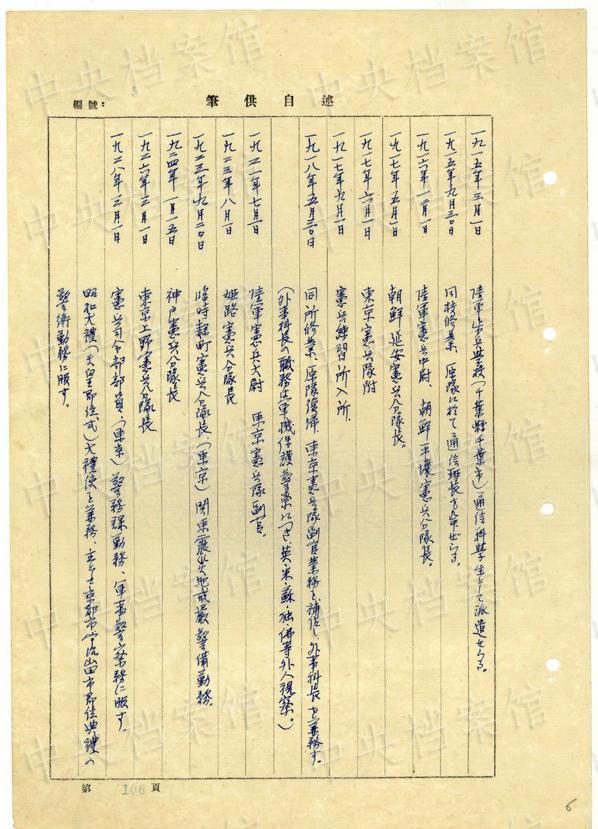 編號：
筆供自述
一九一五年三月一日　陸軍步兵學校(千葉縣千葉市)通信科學生トシテ派遣セラル。
一九一五年九月三〇日　同校修業、原隊ニ於テ通信班長ヲ命ゼラル。
一九一六年一二月一日　陸軍憲兵中尉　朝鮮平壤憲兵分隊長。
一九一七年五月一日　朝鮮延安憲兵分隊長。
一九一七年六月一日　東京憲兵隊附
一九一七年九月一日　憲兵練習所入所.
一九一八年五月三〇日　同所修業、原隊復帰、東京憲兵隊副官業務ヲ補佐シ、外事科長ヲ兼務ス。
(外事科長ノ職務ハ軍機保護警察ニツキ英・米・蘇・独佛等外人視察。)
一九二一年七月一日　陸軍憲兵大尉　東京憲兵隊副官。
一九二三年八月一日　姫路憲兵分隊長
一九二三年九月二〇日　臨時麹町憲兵分隊長(東京)関東震災地戒嚴警備勤務。
一九二四年一月一五日　神戸憲兵分隊長
一九二六年三月一日　東京上野憲兵分隊長
一九二八年三月一日　憲兵司令部部員(東京)警務課勤務、軍事警察業務ニ服ス。
昭和大禮(天皇即位式)大禮使ヲ兼務、主トシテ京都市宇治山田市即位典禮ノ
警衛勤務ニ服ス。
第 106 頁
6
中央档案馆